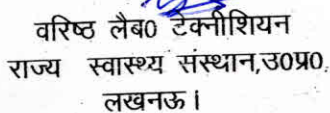 वरिष्ठ लैब0 टेक्नीशियन
राज्य स्वास्थ्य संस्थान,उ0प्र0.
लखनऊ।